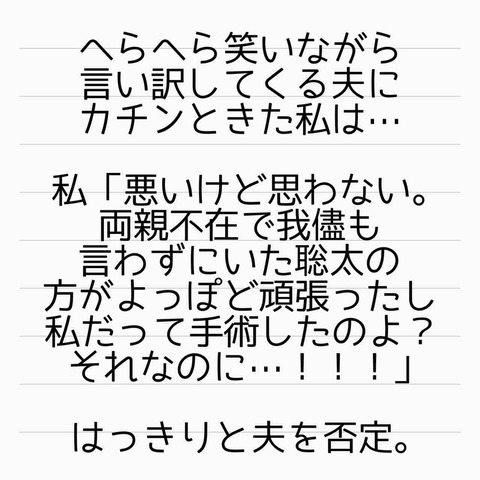 へらへら笑いながら
言い訳してくる夫に
カチンときた私は…
私「悪いけど思わない。
両親不在で我儘も
言わずにいた聡太の
方がよっぽど頑張ったし
私だって手術したのよ？
それなのに…！！！」
はっきりと夫を否定。